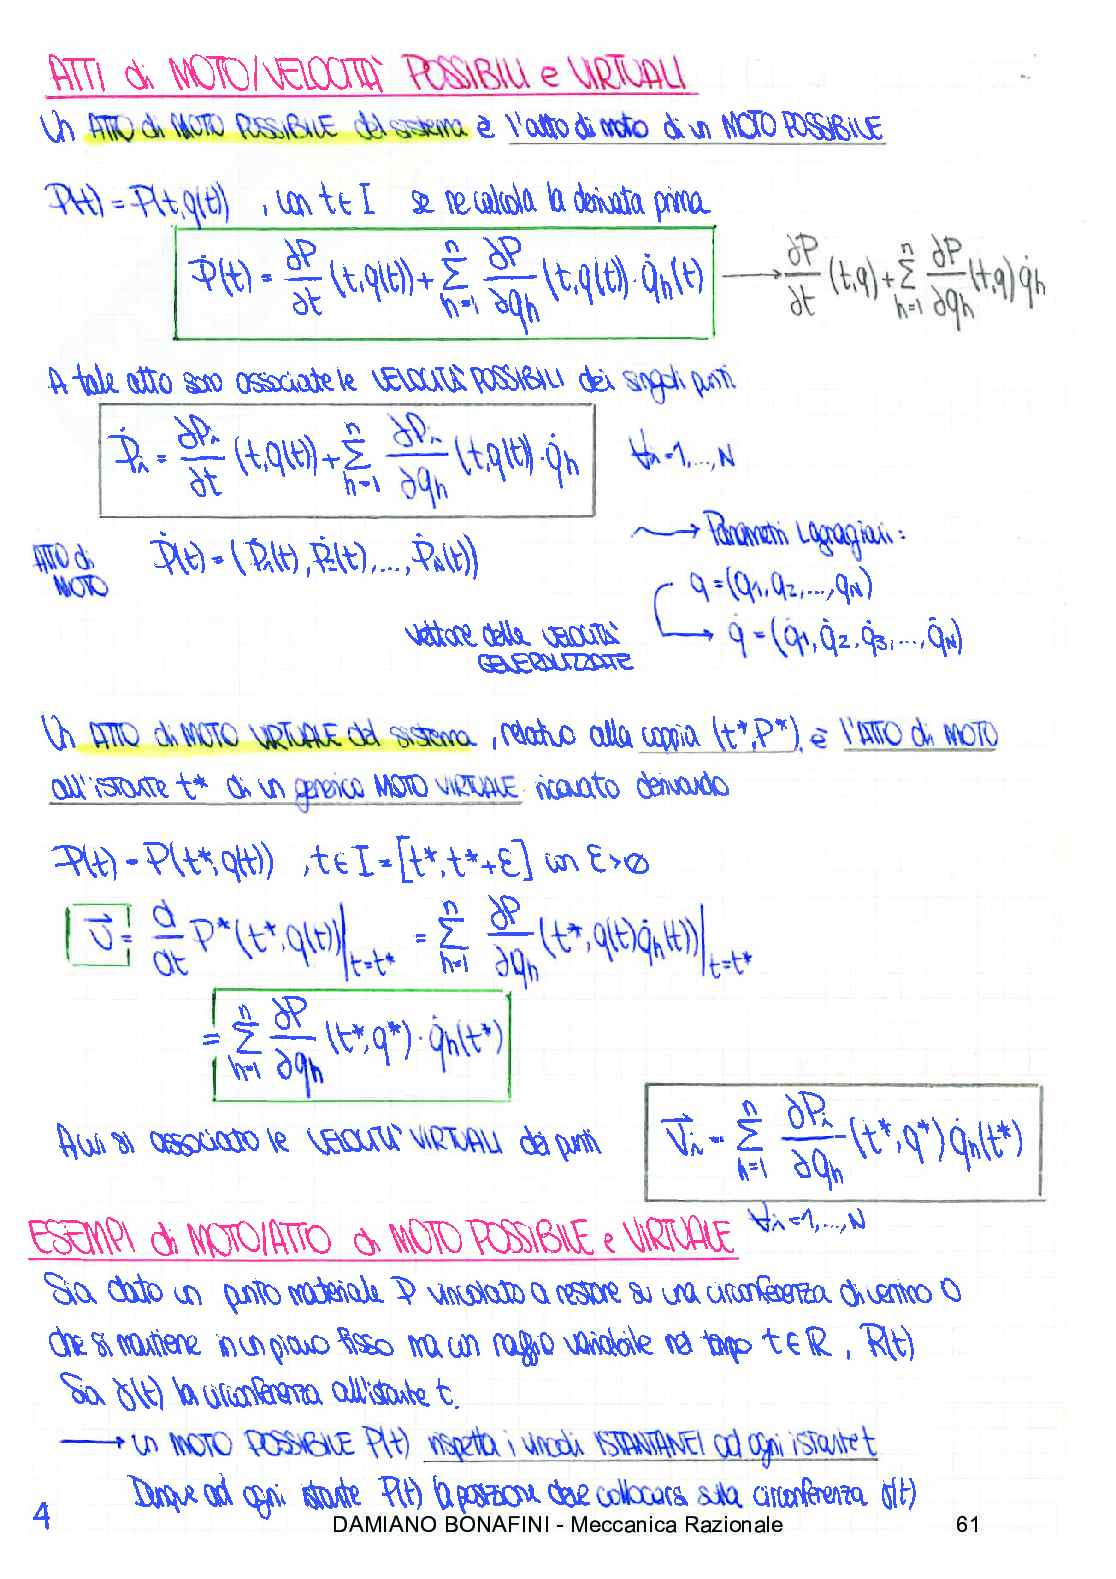 ATTI di MOTO/VELOCITA' POSSIBILI e VIRTUALI
Un ATTO di MOTO POSSIBILE del sistema è l'atto di moto di un MOTO POSSIBILE
P(t) = P(t,q(t)) , con t ∈ I se ne calcola la derivata prima
Ṗ(t) = ∂P/∂t (t,q(t)) + Σ_{h=1}^{n} ∂P/∂qh (t,q(t)) · q̇h(t) → ∂P/∂t (t,q) + Σ_{h=1}^{n} ∂P/∂qh (t,q) q̇h
A tale atto sono associate le VELOCITA' POSSIBILI dei singoli punti
Ṗi = ∂Pi/∂t (t,q(t)) + Σ_{h=1}^{n} ∂Pi/∂qh (t,q(t)) · q̇h ∀i=1,...,N
ATTO di MOTO
Ṗ(t) = (Ṗ1(t), Ṗ2(t),..., ṖN(t))
→ Parametri Lagragiani:
q = (q1, q2, ..., qN)
Vettore delle VELOCITA' GENERALIZZATE
→ q̇ = (q̇1, q̇2, q̇3, ..., q̇N)
Un ATTO di MOTO VIRTUALE del sistema, relativo alla coppia (t*,P*), è l'ATTO di MOTO
all'istante t* di un generico MOTO VIRTUALE ricavato derivando
P(t) = P(t*,q(t)) , t ∈ I = [t*, t*+ε] con ε>0
v⃗ = d/dt P*(t*,q(t))|t=t* = Σ_{h=1}^{n} ∂P/∂qh (t*,q(t)q̇h(t))|t=t*
= Σ_{h=1}^{n} ∂P/∂qh (t*,q*) · q̇h(t*)
A cui si associato le VELOCITA' VIRTUALI dei punti
v⃗i = Σ_{h=1}^{n} ∂Pi/∂qh (t*,q*) q̇h(t*)
∀i=1,...,N
ESEMPI di MOTO/ATTO di MOTO POSSIBILE e VIRTUALE
Sia dato un punto materiale P vincolato a restare su una circonferenza di centro O
che si mantiene in un piano fisso ma con raggio variabile nel tempo t ∈ ℝ, R(t)
Sia γ(t) la circonferenza all'istante t.
→ un MOTO POSSIBILE P(t) rispetta i vincoli ISTANTANEI ad ogni istante t
Dunque ad ogni istante P(t) la posizione deve collocarsi sulla circonferenza γ(t)
4
DAMIANO BONAFINI - Meccanica Razionale 61